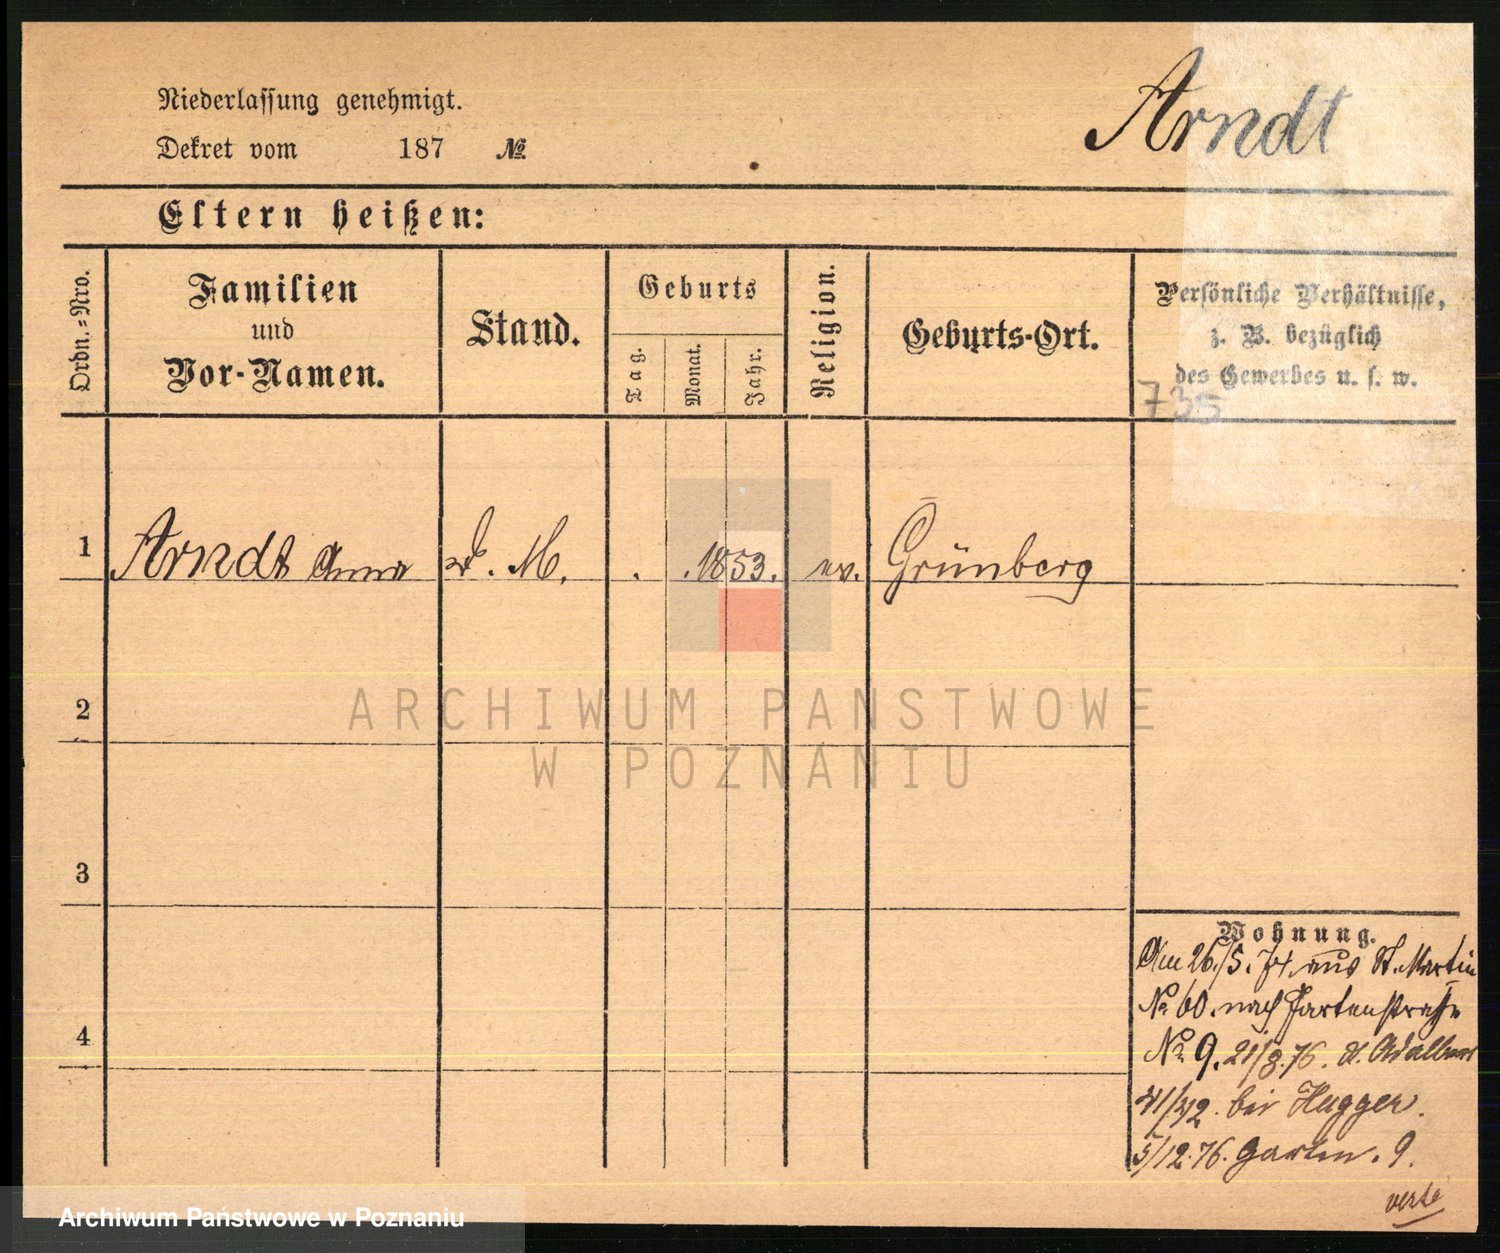 Niederlassung genehmigt.
Dekret vom 187 №
Arndt
Eltern heißen:
Ordn.=Nro.
Familien
und
Vor-Namen.
Stand.
Geburts
Tag.
Monat.
Jahr.
Religion.
Geburts-Ort.
Persönliche Verhältnisse,
z. B. bezüglich
des Gewerbes u. s. w.
735
1 Arndt Anna d. M. . . 1853. ev. Grünberg
2
ARCHIWUM PANSTWOWE
W POZNANIU
3
4
Wohnung.
Am 26./5. aus St. Martin
№ 60. nach Gartenstraße
№ 9. 21/8.76. St. Adalbert
41/42. bei Hugger.
5/12.76. Garten. 9.
verte
Archiwum Państwowe w Poznaniu